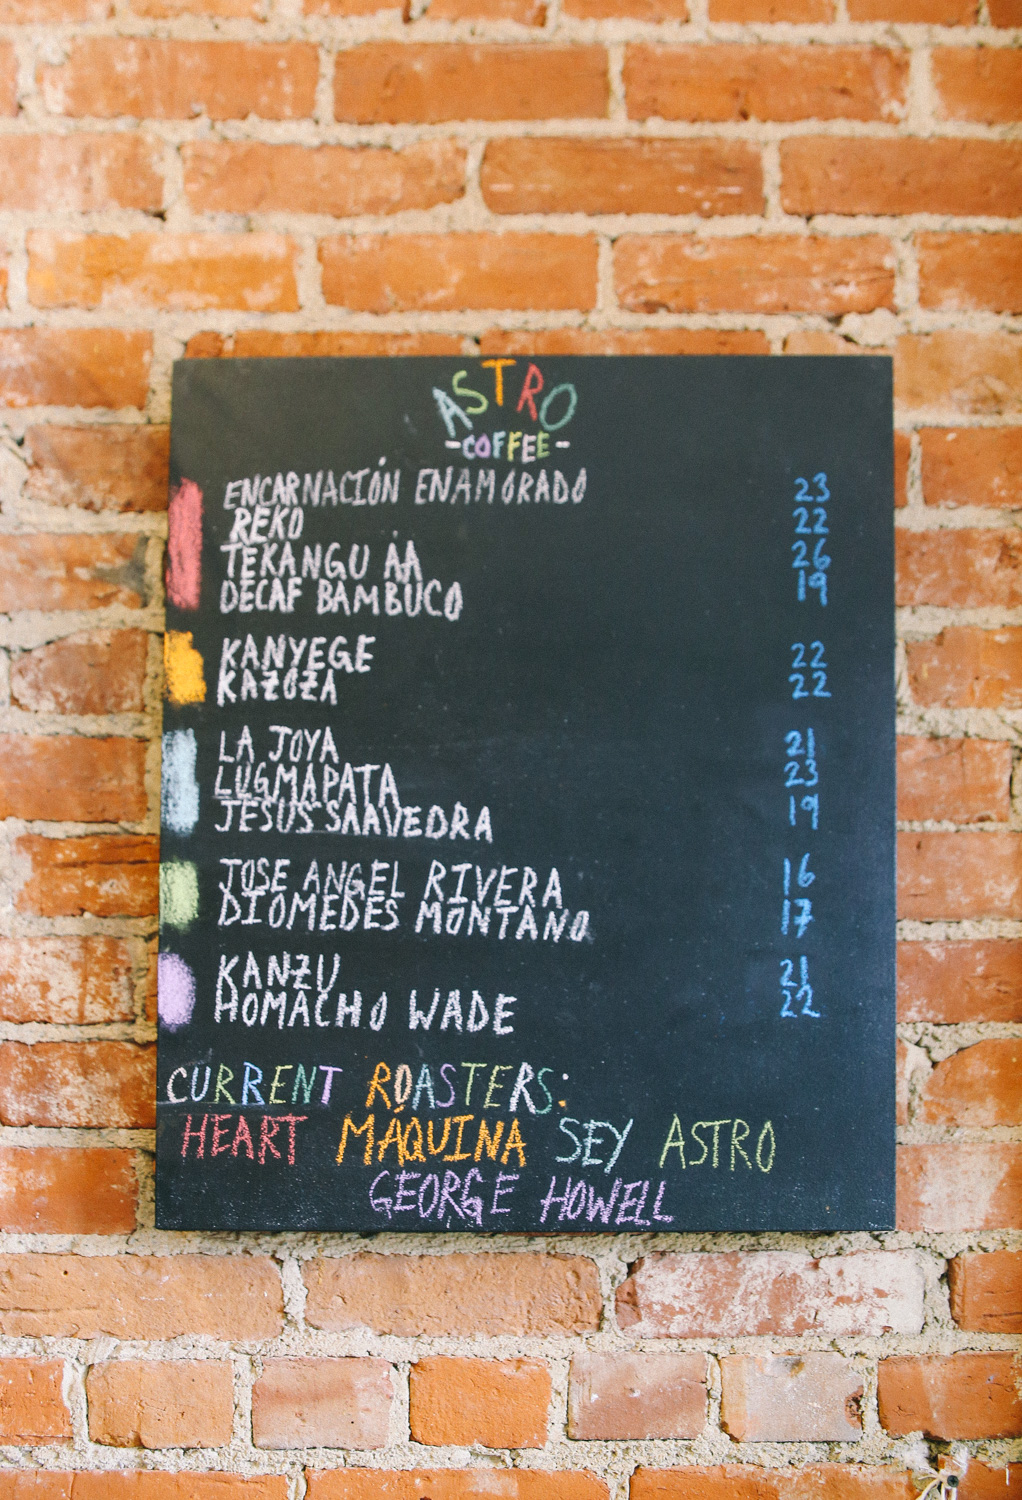 ASTRO
-COFFEE-
ENCARNACIÓN ENAMORADO 23
REKO 22
TEKANGU AA 26
DECAF BAMBUCO 19
KANYEGE 22
KAZOZA 22
LA JOYA 21
LUGMAPATA 23
JESUS SAAVEDRA 19
JOSE ANGEL RIVERA 16
DIOMEDES MONTANO 17
KANZU 21
HOMACHO WADE 22
CURRENT ROASTERS:
HEART MÁQUINA SEY ASTRO
GEORGE HOWELL